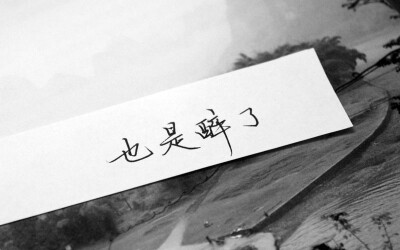 也是醉了